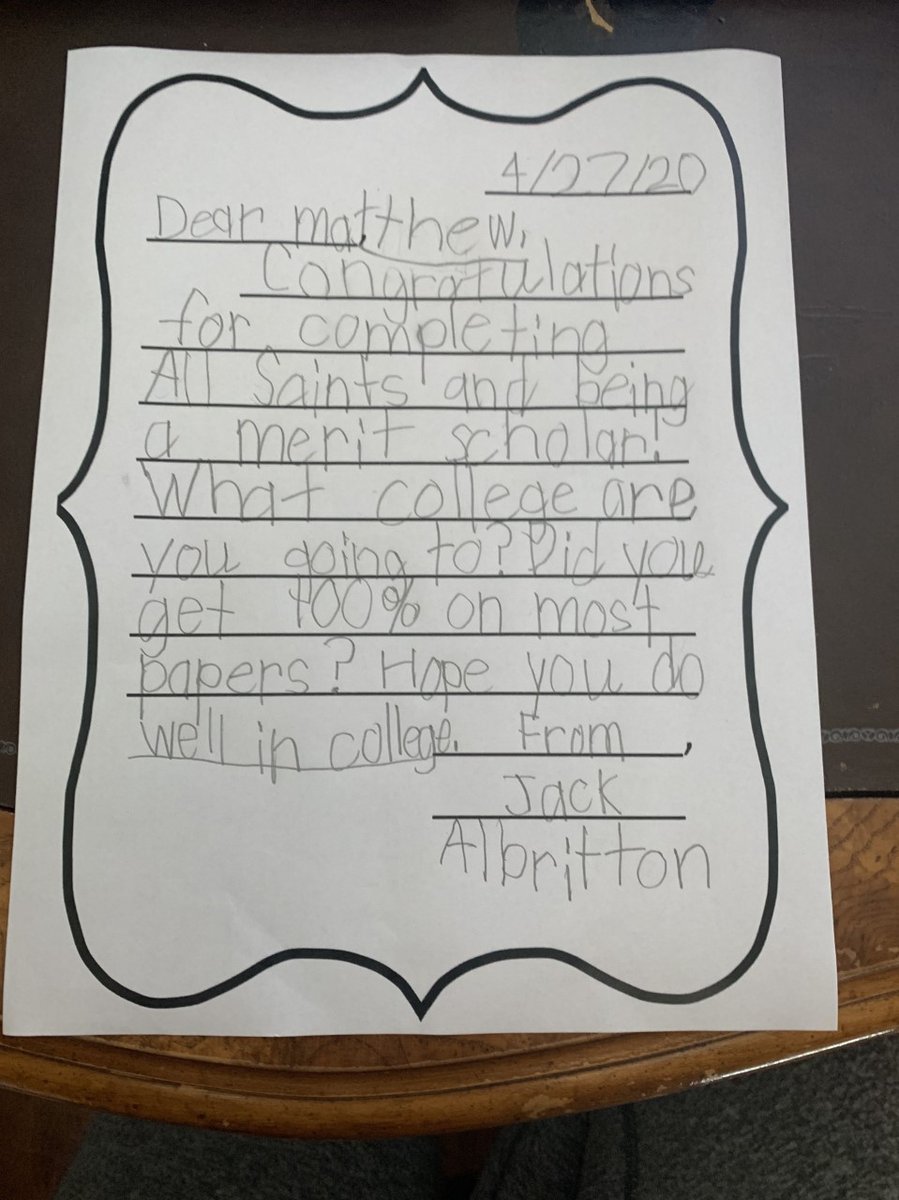 4/27/20
Dear matthew,
Congratulations
for completing
All Saints and being
a merit scholar!
What college are
you going to? Did you
get 100% on most
papers? Hope you do
well in college. From,
Jack
Albritton